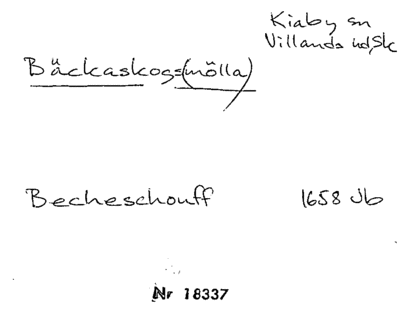 Kiaby sn
Villands hd, Sk
Bäckaskogs=(mölla)
Becheschouff 1658 Jb
Nr 18337